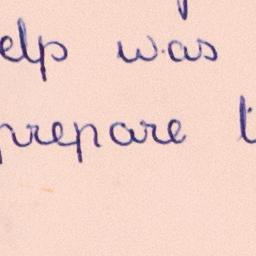 elp was
prepare t